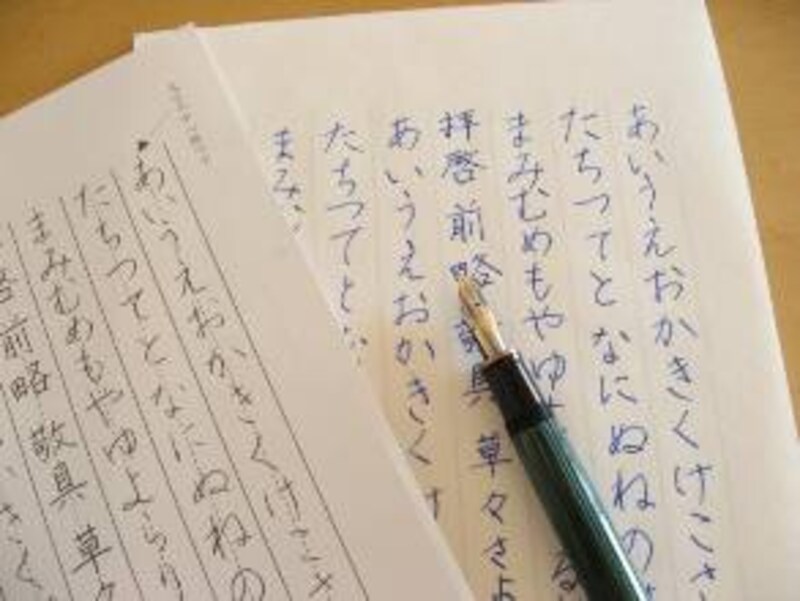 あいうえおかきくけこさ
たちつてと なにぬねの
まみむめもやゆ る
拝啓 前略 敬具 草々さよ
あいうえおかきくけ
たちつてとな
まみ
あいうえおかきくけこさ
たちつてとなにぬねの
まみむめもやゆよらり
啓 前略 敬具 草々
きく